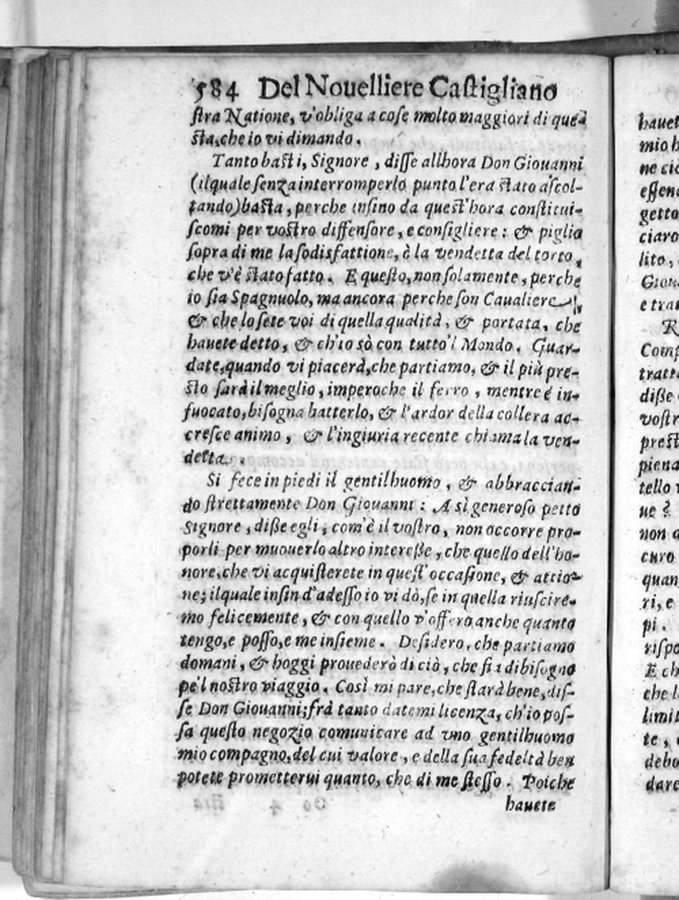 584 Del Nouelliere Castigliano
stra Natione, v'obliga a cose molto maggiori di que-
sta, che io vi dimando.
Tanto basti, Signore, disse allhora Don Giouanni
(ilquale senza interromperlo punto l'era stato ascol-
tando) basta, perche insino da quest'hora constitui-
scomi per vostro diffensore, e consigliere: & piglio
sopra di me la sodisfattione, ò la vendetta del torto,
che v'è stato fatto. E questo, non solamente, perche
io sia Spagnuolo, ma ancora perche son Caualiere,
& che lo sete voi di quella qualità, & portata, che
hauete detto, & ch'io sò con tutto'l Mondo. Guar-
date, quando vi piacerà, che partiamo, & il più pre-
sto sarà il meglio, imperoche il ferro, mentre é in-
fuocato, bisogna batterlo, & l'ardor della collera ac-
cresce animo, & l'ingiuria recente chiama la ven-
detta.
Si fece in piedi il gentilhuomo, & abbraccian-
do strettamente Don Giouanni: A sì generoso petto
Signore, disse egli, com'è il vostro, non occorre pro-
porli per muouerlo altro interesse, che quello dell'ho-
nore, che vi acquisterete in quest'occasione, & attio-
ne; ilquale insin d'adesso io vi dò, se in quella riuscire-
mo felicemente, & con quello v'offero anche quanto
tengo, e posso, e me insieme. Desidero, che partiamo
domani, & hoggi prouederò di ciò, che fia dibisogno
pe'l nostro viaggio. Così mi pare, che starà bene, dis-
se Don Giouanni; frà tanto datemi licenza, ch'io pos-
sa questo negozio comunicare ad vno gentilhuomo
mio compagno, del cui valore, e della sua fedeltà ben
potete promettervi quanto, che di me stesso. Poiche
hauete
hauete
mio h
ne ciò
essen
getto
ciaro
lito,
Giou
e tra
R
Comp
tratt
disse
vostr
prest
piena
tello
ue?
non a
curo
quan
ri, e
pi.
rispo
E ch
che l
limit
te,
debo
dare